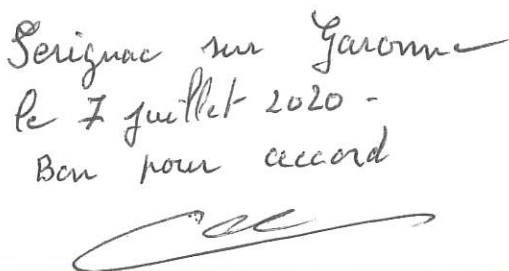 Serignac sur Garonne
le 7 juillet 2020 -
Bon pour accord